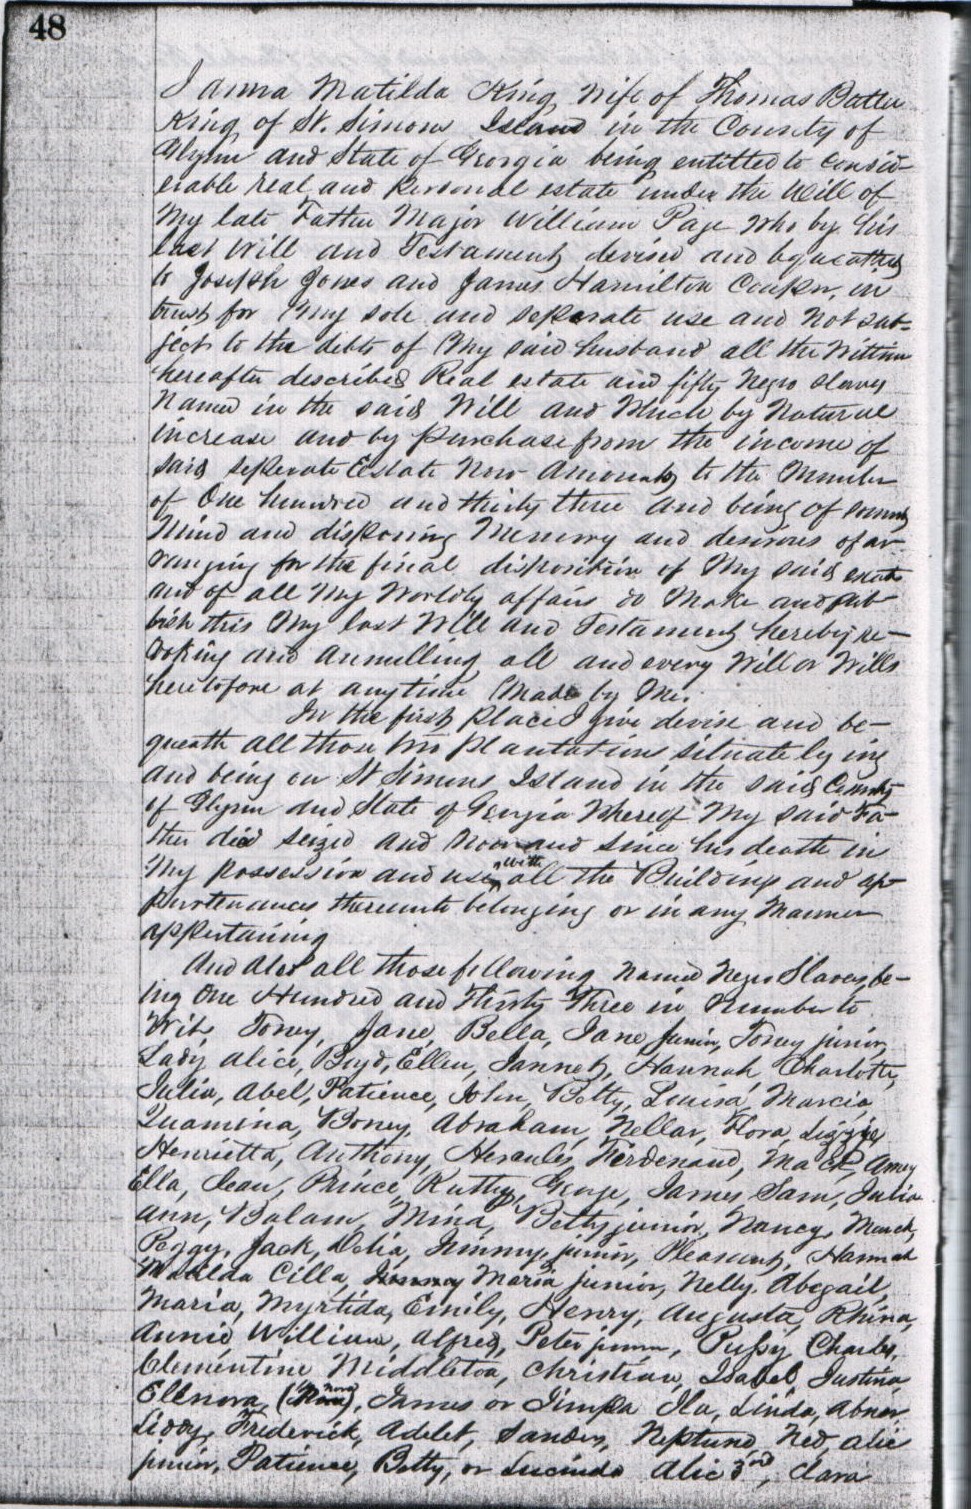 48
I Anna Matilda King wife of Thomas Butler
King of St. Simons Island in the County of
Glynn and State of Georgia being entitled to consid-
erable real and personal estate under the Will of
My late Father Major William Page who by his
last Will and Testament devised and bequeathed
to Joseph Jones and James Hamilton Couper, in
trust for My sole and seperate use and not sub-
ject to the debts of My said husband all the within
hereafter described Real estate and fifty Negro slaves
Named in the said Will and Which by Natural
increase and by purchase from the income of
said seperate Estate Now Amounts to the Number
of One hundred and thirty three and being of sound
Mind and disposing Memory and desirous of ar-
ranging for the final disposition of My said estate
and of all My Worldly affairs do Make and pub
lish this My last Will and Testament hereby re-
voking and annulling all and every Will or Wills
heretofore at anytime Made by Me.
In the first place I give devise and be-
queath all those two plantations situate lying
and being on St Simons Island in the said County
of Glynn and State of Georgia Whereof My said Fa-
ther died seized and Now and since his death in
My possession and use, with all the Buildings and ap-
purtenances thereunto belonging or in any Manner
appertaining
And also all those following Named Negro Slaves, be-
ing One Hundred and Thirty Three in Number to
Wit, Toney, Jane, Bella, Jane junior, Toney junior,
Lady, Alice, Boyd, Ellen, Jannet, Hannah, Charlotte,
Julia, Abel, Patience, John, Betty, Louisa, Marcia,
Quamina, Boney, Abraham, Nellar, Flora, Lizzie,
Henrietta, Anthony, Hercules, Ferdenand, Mack, Amey
Ella, Jean, Prince, Ruthy, George, James, Sam, Julia
Ann, Balam, Mina, Betty junior, Nancy, March,
Peggy, Jack, Delia, Jimmy, junior, Pleasant, Hannah
Matilda Cilla, Maria junior, Nelly, Abegail,
Maria, Myrtida, Emily, Henry, Augusta, Rhina,
Annie William, Alfred, Peter junior, Pussy, Charles,
Clementine Middleton, Christian, Isabel Justina,
Ellnora, (Nora), James or Jimper Ila, Linda, Abner
Liddy, Frederick, Adelet, Sanders, Neptune, Ned, Alic
junior, Patience, Betty, or Lucinda Alic 3rd, Clara